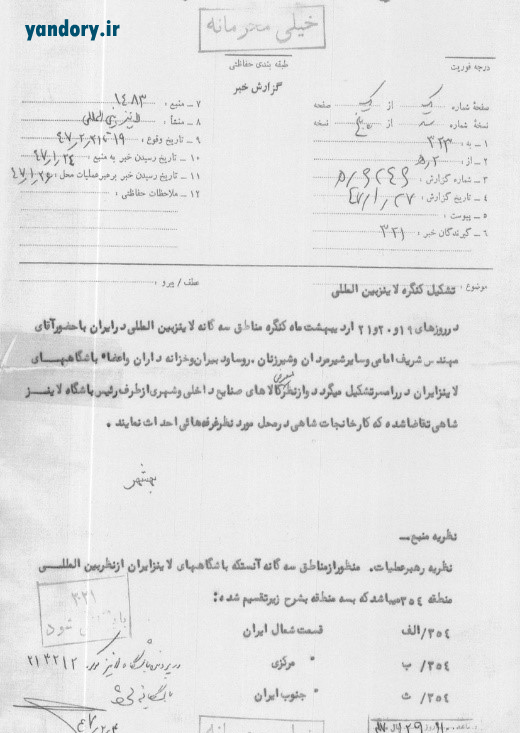 yandory.ir
خیلی محرمانه
درجه فوریت
طبقه بندی حفاظتی
گزارش خبر
صفحهٔ شماره یک از یک صفحه
نسخهٔ شماره از نسخه
۱ ـ به : ۳۲۳
۲ ـ از : ۵ه۲
۳ ـ شماره گزارش :
۴ ـ تاریخ گزارش : ۴۷/۱/۲۷
۵ ـ پیوست :
۶ ـ گیرندگان خبر : ۳۲۱
۷ ـ منبع : ۱۴۸۳
۸ ـ منشأ : لاینز بین المللی
۹ ـ تاریخ وقوع : ۱۹-۲۰-۲۱/۲/۴۷
۱۰ ـ تاریخ رسیدن خبر به منبع : ۴۷/۱/۲۴
۱۱ ـ تاریخ رسیدن خبر برهبر عملیات محل : ۴۷/۱/۲۶
۱۲ ـ ملاحظات حفاظتی :
موضوع : تشکیل کنگره لاینز بین المللی
عطف / پیرو :
در روزهای ۱۹ و ۲۰ و ۲۱ اردیبهشت ماه کنگره مناطق سه گانه لاینز بین المللی در ایران با حضور آقای
مهندس شریف امامی وسایر شیرمردان وشیرزنان . روسا ودبیران وخزانه داران واعضاء باشگاههای
لاینز ایران در رامسر تشکیل میگردد و از نظر معرفی کالاهای صنایع داخلی وشهری از طرف رئیس باشگاه لاینز
شاهی تقاضا شده که کارخانجات شاهی در محل مورد نظر غرفه هائی احداث نمایند .
بهشهر
نظریه منبع ـ
نظریه رهبر عملیات . منظور از مناطق سه گانه آنستکه باشگاههای لاینز ایران از نظر بین المللی
منطقه ۳۵۴ میباشد که بسه منطقه بشرح زیر تقسیم شده :
۳۵۴/ الف قسمت شمال ایران
۳۵۴/ ب " مرکزی
۳۵۴/ ث " جنوب ایران
۳۰۲۱
شود
در پرونده باشگاه لاینز
۲۱۳۲۱۲
بایگانی شود